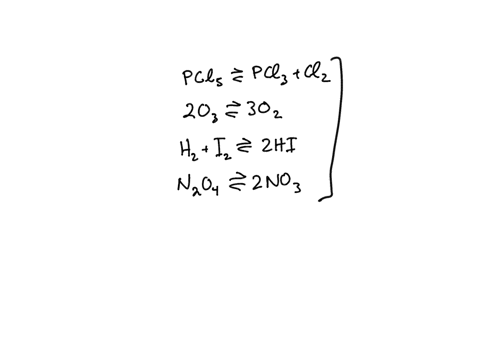 PCl₅ ⇌ PCl₃ + Cl₂
2O₃ ⇌ 3O₂
H₂ + I₂ ⇌ 2HI
N₂O₄ ⇌ 2NO₃